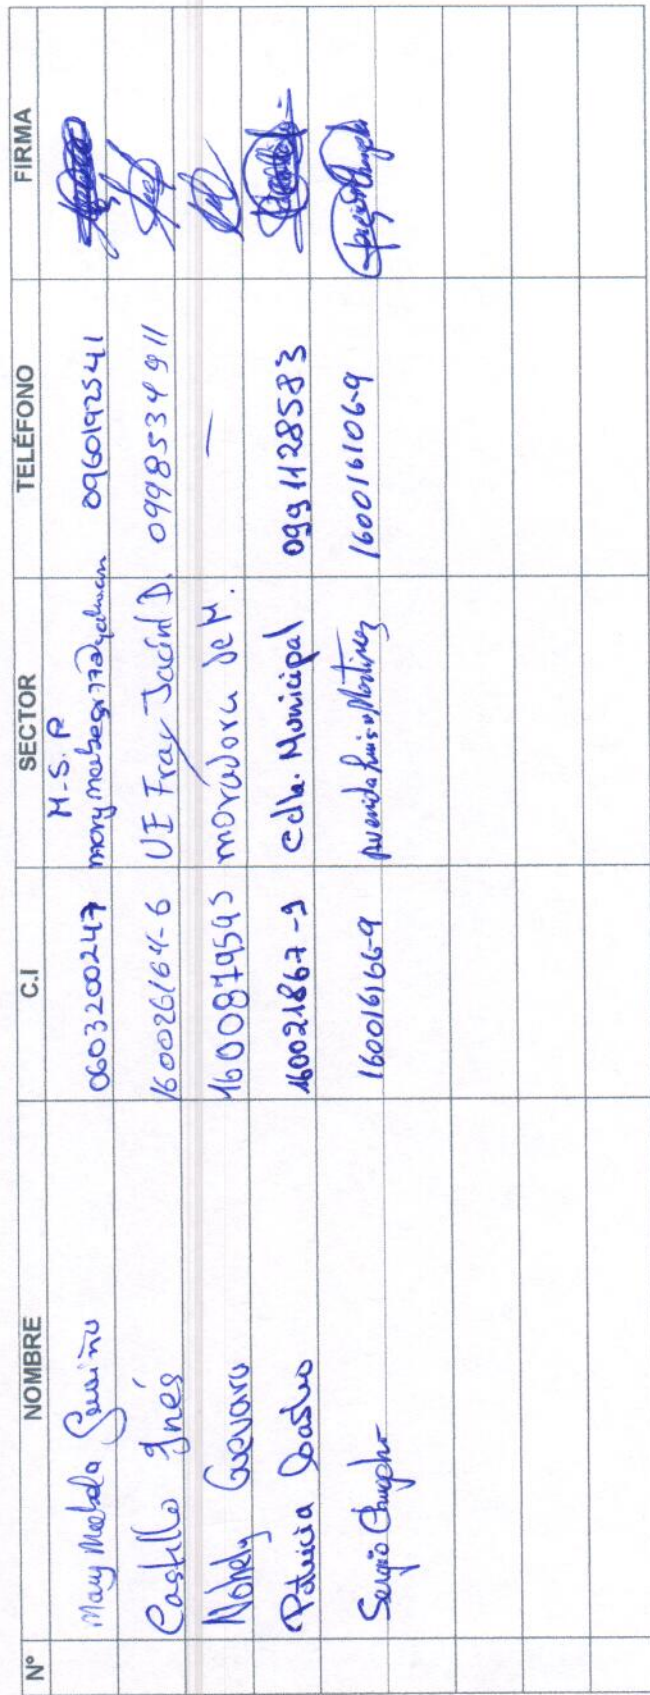 Nº NOMBRE C.I SECTOR TELÉFONO FIRMA
Mary 0603200247 M.S.P 0960192541
Castillo Inés 160026164-6 UE Fray Jacint D. 0998534911
Nohely Guevara 1600879595 moradora de M. —
Patricia Castro 160021867-9 Cdla. Municipal 0991128583
Sergio 160016166-9 Avenida Luis Martinez 160016106-9